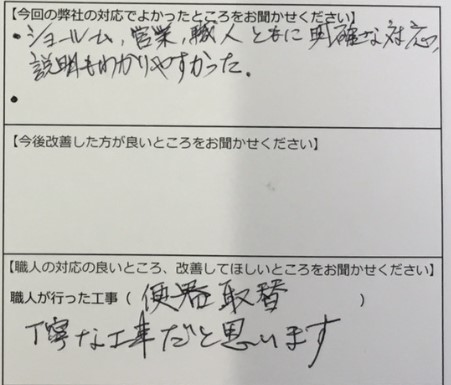 【今回の弊社の対応でよかったところをお聞かせください】
・ショールーム,営業,職人ともに明確な対応,
説明もわかりやすかった.
・
【今後改善した方が良いところをお聞かせください】
【職人の対応の良いところ、改善してほしいところをお聞かせください】
職人が行った工事（便器取替）
丁寧な工事だと思います